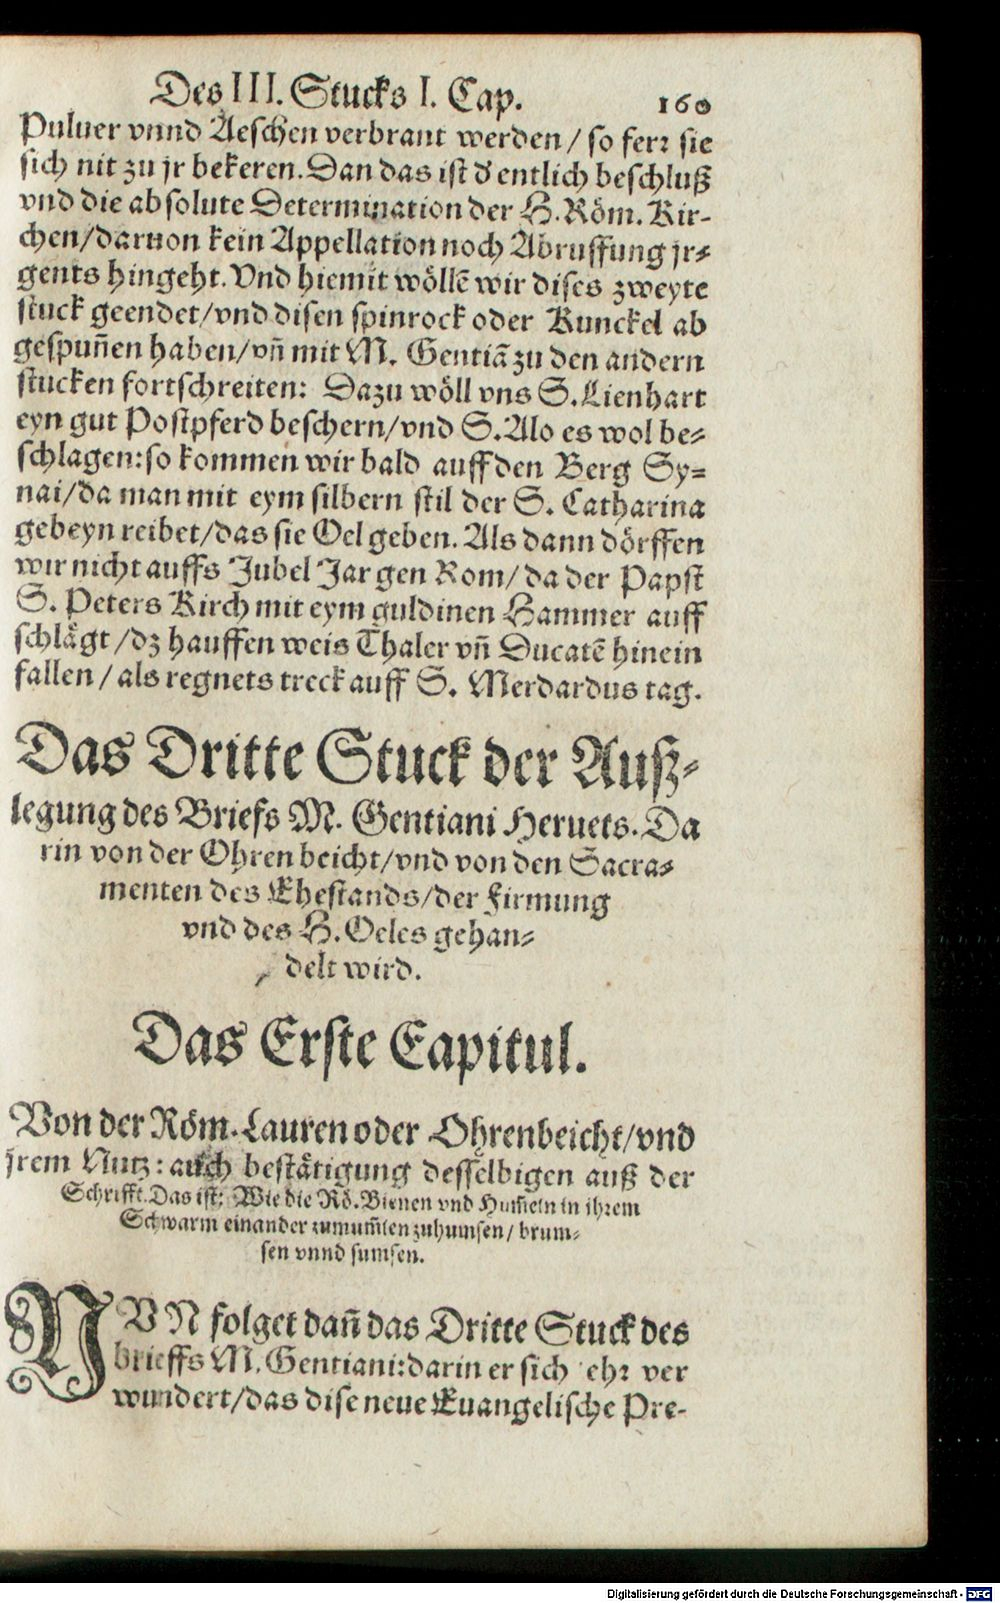 Des III. Stucks I. Cap. 160
Puluer vnnd Aeschen verbrant werden / so ferꝛ sie
sich nit zu jr bekeren. Dan das ist dʼentlich beschluß
vnd die absolute Determination der H. Röm. Kir-
chen/daruon kein Appellation noch Abruffung jr-
gents hingeht. Vnd hiemit wöllẽ wir dises zweyte
stuck geendet/vnd disen spinrock oder Kunckel ab
gespuñen haben/vñ mit M. Gentiã zu den andern
stucken fortschreiten: Dazu wöll vns S. Lienhart
eyn gut Postpferd beschern/vnd S. Alo es wol be-
schlagen: so kommen wir bald auff den Berg Sy-
nai/da man mit eym silbern stil der S. Catharina
gebeyn reibet/das sie Oel geben. Als dann dörffen
wir nicht auffs Jubel Jar gen Rom/da der Papst
S. Peters Kirch mit eym guldinen Hammer auff
schlägt /dz hauffen weis Thaler vñ Ducatẽ hinein
fallen / als regnets treck auff S. Merdardus tag.
Das Dritte Stuck der Auß-
legung des Briefs M. Gentiani Heruets. Da
rin von der Ohrenbeicht/vnd von den Sacra-
menten des Ehestands/der Firmung
vnd des H. Oeles gehan-
delt wird.
Das Erste Capitul.
Von der Röm. Lauren oder Ohrenbeicht/vnd
jrem Nutz: auch bestätigung desselbigen auß der
Schrifft. Das ist: Wie die Rö. Bienen vnd Hum̃eln in ihrem
Schwarm einander zumum̃len zuhumsen/ brum-
sen vnnd sumsen.
NVN folget dañ das Dritte Stuck des
brieffs M. Gentiani: darin er sich ehꝛ ver
wundert/das dise neue Euangelische Pre-
Digitalisierung gefördert durch die Deutsche Forschungsgemeinschaft - DFG